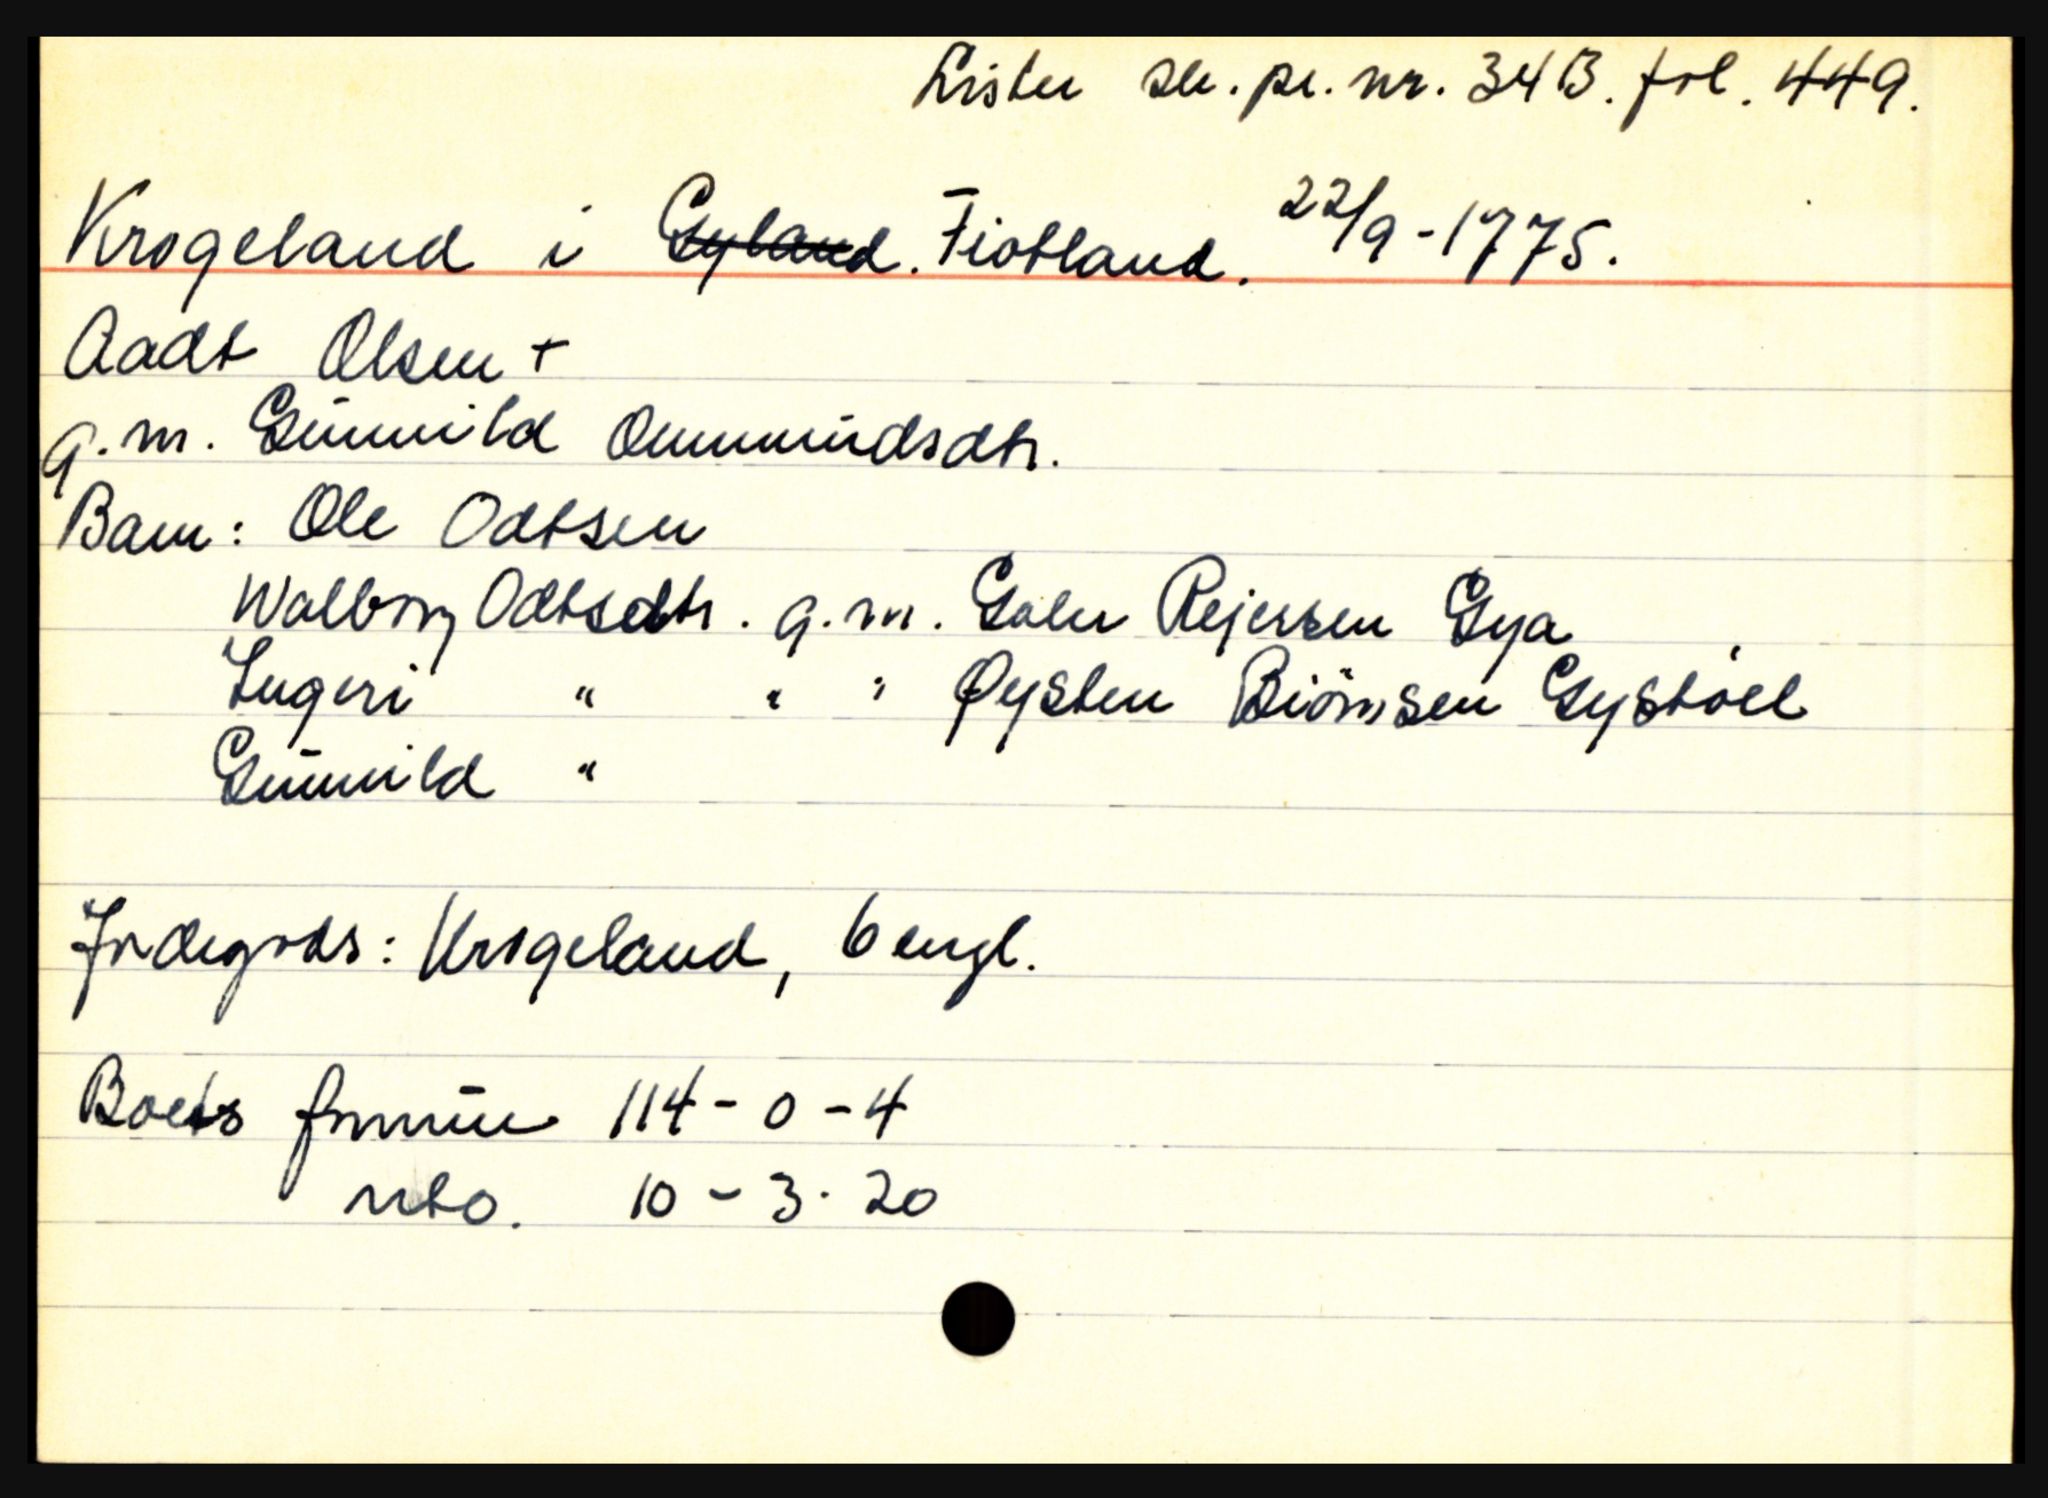 Lister sk. pr. nr. 34B. fol. 449.
Krogeland i Gyland. Fiotland. 22/9-1775.
Aadt Olsen +
g.m. Gunnild Ommundsdtr.
Barn: Ole Odtsen
Walborg Odtsdtr. g.m. Galer Rejersen Gya
Ingeri " " " Øysten Biörnsen Gystöel
Gunnild "
Jordegods: Krogeland, 6 engl.
Boets formue 114-0-4
nto. 10-3-20